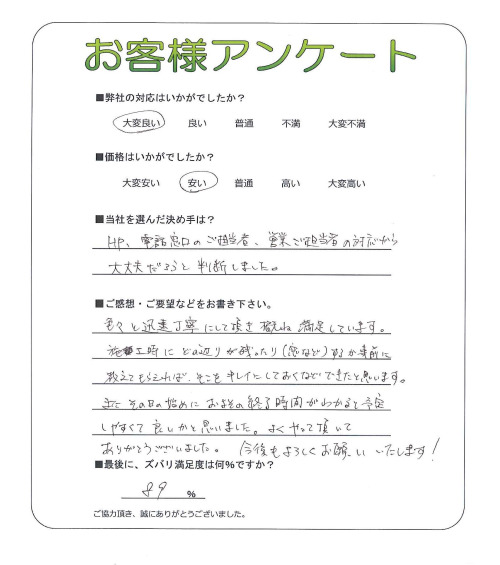 お客様アンケート
■弊社の対応はいかがでしたか？
大変良い 良い 普通 不満 大変不満
■価格はいかがでしたか？
大変安い 安い 普通 高い 大変高い
■当社を選んだ決め手は？
HP、電話窓口のご担当者、営業ご担当者の対応から
大丈夫だろうと判断しました。
■ご感想・ご要望などをお書き下さい。
色々と迅速丁寧にして頂き概ね満足しています。
施工時にどの辺りが残ったり(窓など)するか事前に
教えてもらえれば、そこをキレイにしておくなどできたと思います。
またその日の始めにおよその終了時間がわかると予定
しやすくて良いかと思いました。よくやって頂いて
ありがとうございました。 今後もよろしくお願いいたします！
■最後に、ズバリ満足度は何%ですか？
89 %
ご協力頂き、誠にありがとうございました。